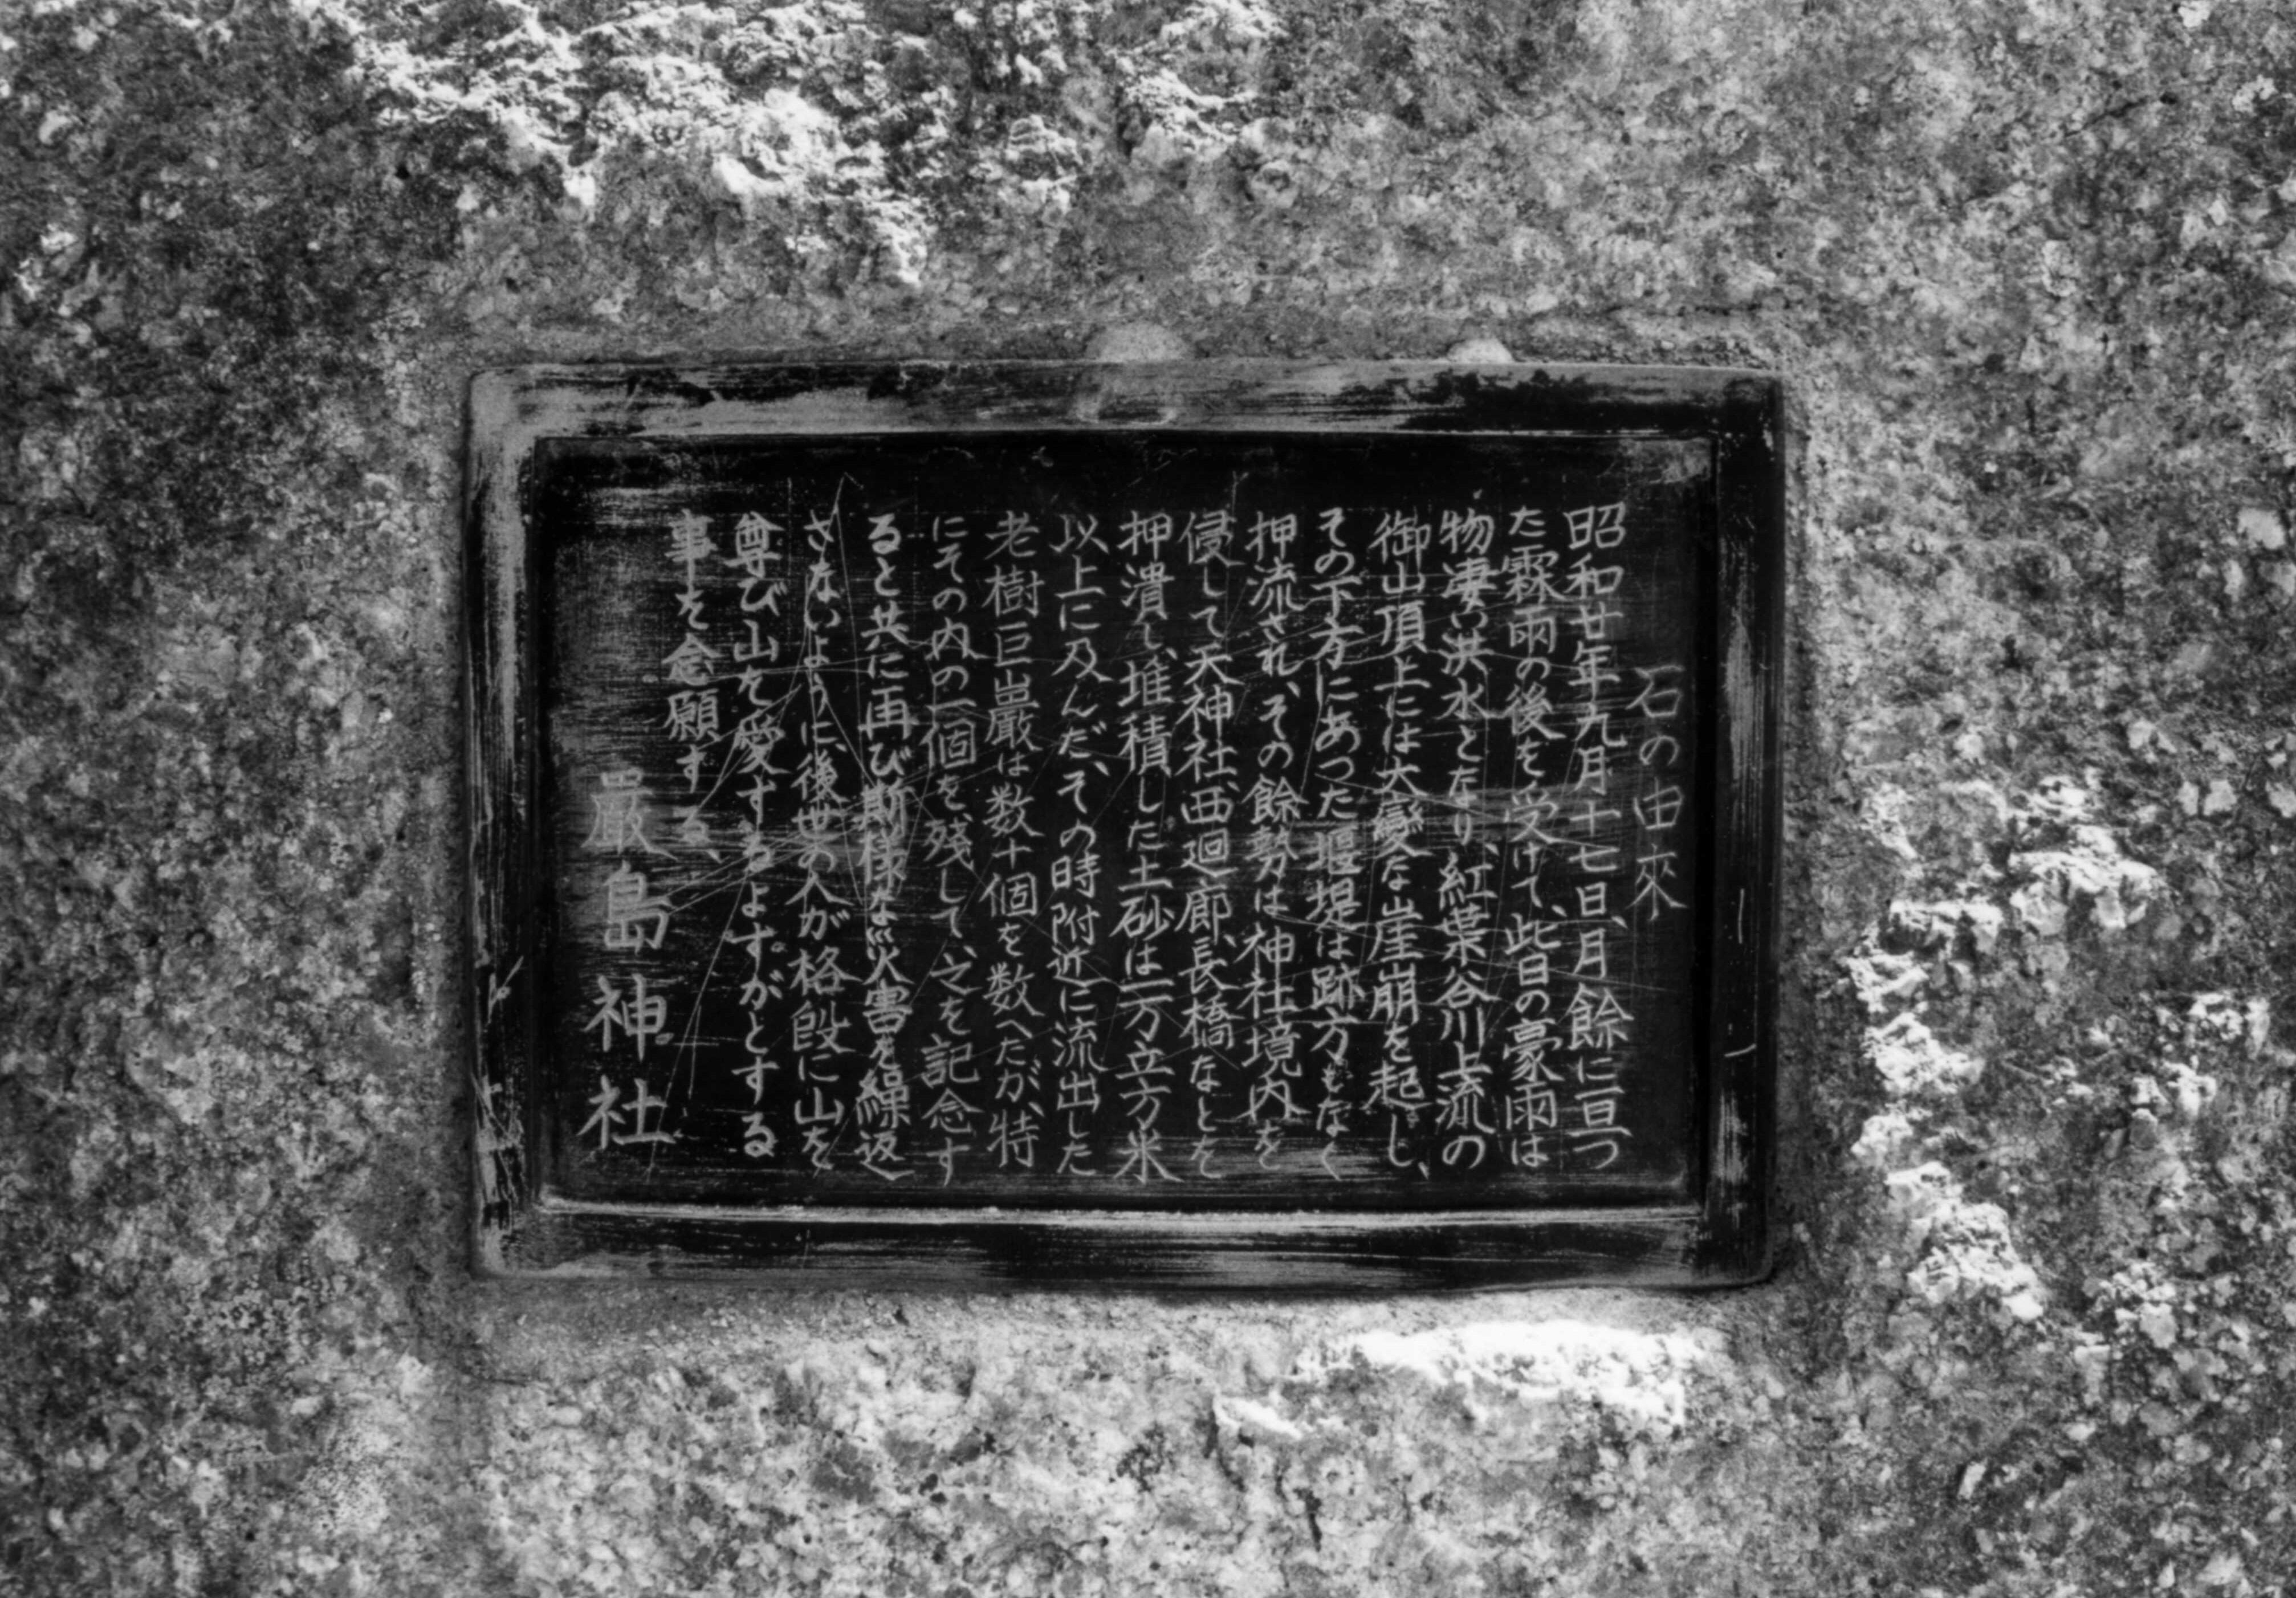 石の由來
昭和廿年九月十七日、月餘に亘つ
た霖雨の後を受けて、此日の豪雨は
物凄い洪水となり、紅葉谷川上流の
御山頂上には大變な崖崩を起し、
その下方にあつた堰堤は跡方もなく
押流され、その餘勢は神社境内を
侵して天神社、西廻廊、長橋なとを
押潰し、堆積した土砂は一万立方米
以上に及んだ、その時附近に流出した
老樹巨巌は数十個を数へたが、特
にその内の一個を残して、之を記念す
ると共に再び斯様な災害を繰返へ
さないように、後世の人が格段に山を
尊び山を愛するよすがとする
事を念願する、
嚴島神社